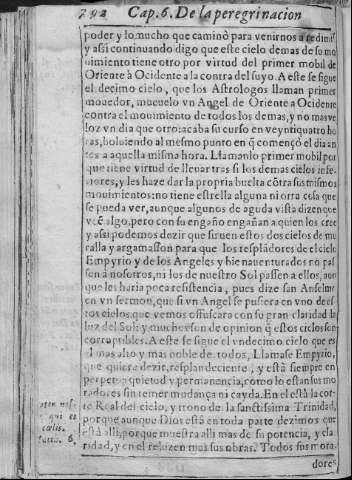 292 Cap. 6. De la peregrinacion
poder y lo mucho que caminò para venirnos a redimir
y assi continuando digo que este cielo demas de su mo
uimiento tiene otro por virtud del primer mobil de
Oriente à Ocidente a la contra del suyo. A este se sigue
el decimo cielo, que los Astrologos llaman primer
mouedor, mueuelo vn Angel de Oriente a Ocidente
contra el mouimiento de todos los demas, y no mas ve
loz vn dia que otro: acaba su curso en veyntiquatro ho
ras, boluiendo al mesmo punto en q̃ començò el dia an
tes a aquella misma hora. Llamanlo primer mobil por
que tiene virtud de lleuar tras si los demas cielos infe-
riores, y les haze dar la propria buelta cõtra sus mismos
mouimientos: no tiene estrella alguna ni otra cosa que
se pueda ver, aunque algunos de aguda vista dizen que
veẽ algo, pero con su engaño engañan a quien los cree
y assi podemos dezir que siruen estos dos cielos de mu
ralla y argamasson para que los resplãdores de el cielo
Empyrio y de los Angeles y bienauenturados no pas
sen à nosotros, ni los de nuestro Sol passen a ellos, aun
que les haria poca resistencia, pues dize san Anselmo
en vn sermon, que si vn Angel se pusiera en vno de es
tos cielos, que vemos offuscara con su gran claridad la
luz del Sol: y muchos son de opinion q̃ estos cielos son
corruptibles. A este se sigue el vndecimo cielo que es
el mas alto y mas noble de todos, Llamase Empyrio,
que quiere dezir, resplandeciente, y està siempre en
perpetua quietud y permanencia, como lo estan sus mo
radores sin temer mudança ni cayda. En el està la cor-
te Real del cielo, y trono de la sanctissima Trinidad,
porque aunque Dios està en toda parte dezimos que
està alli, porque muestra alli mas de su potencia, y cla
ridad, y en el reluzen mas sus obras. Todos sus mora
dores
qui es
cælis.
6.